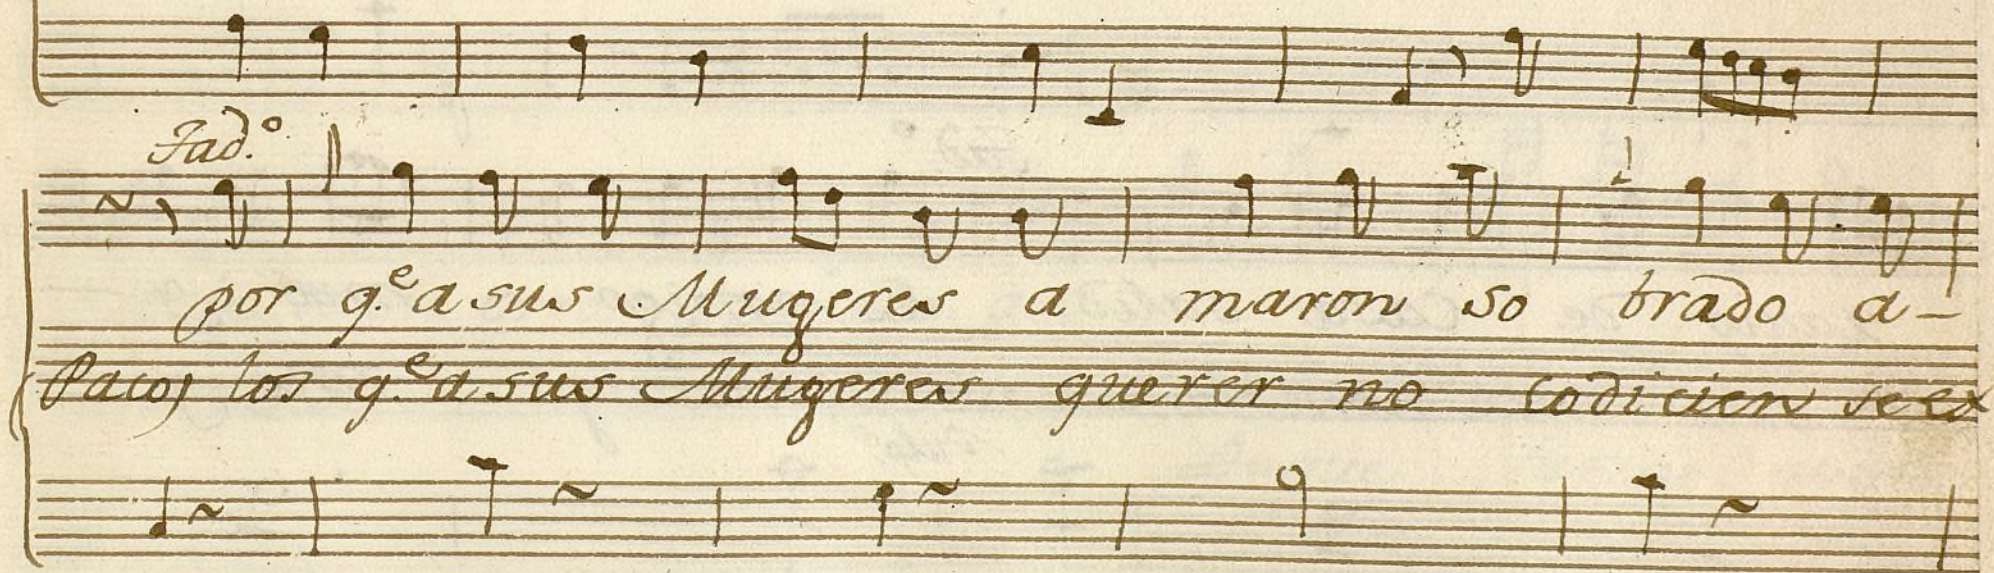 Tad.º
por q.e a sus Mugeres a maron so brado a-
Paco) los q.e a sus Mugeres querer no codicien se ex